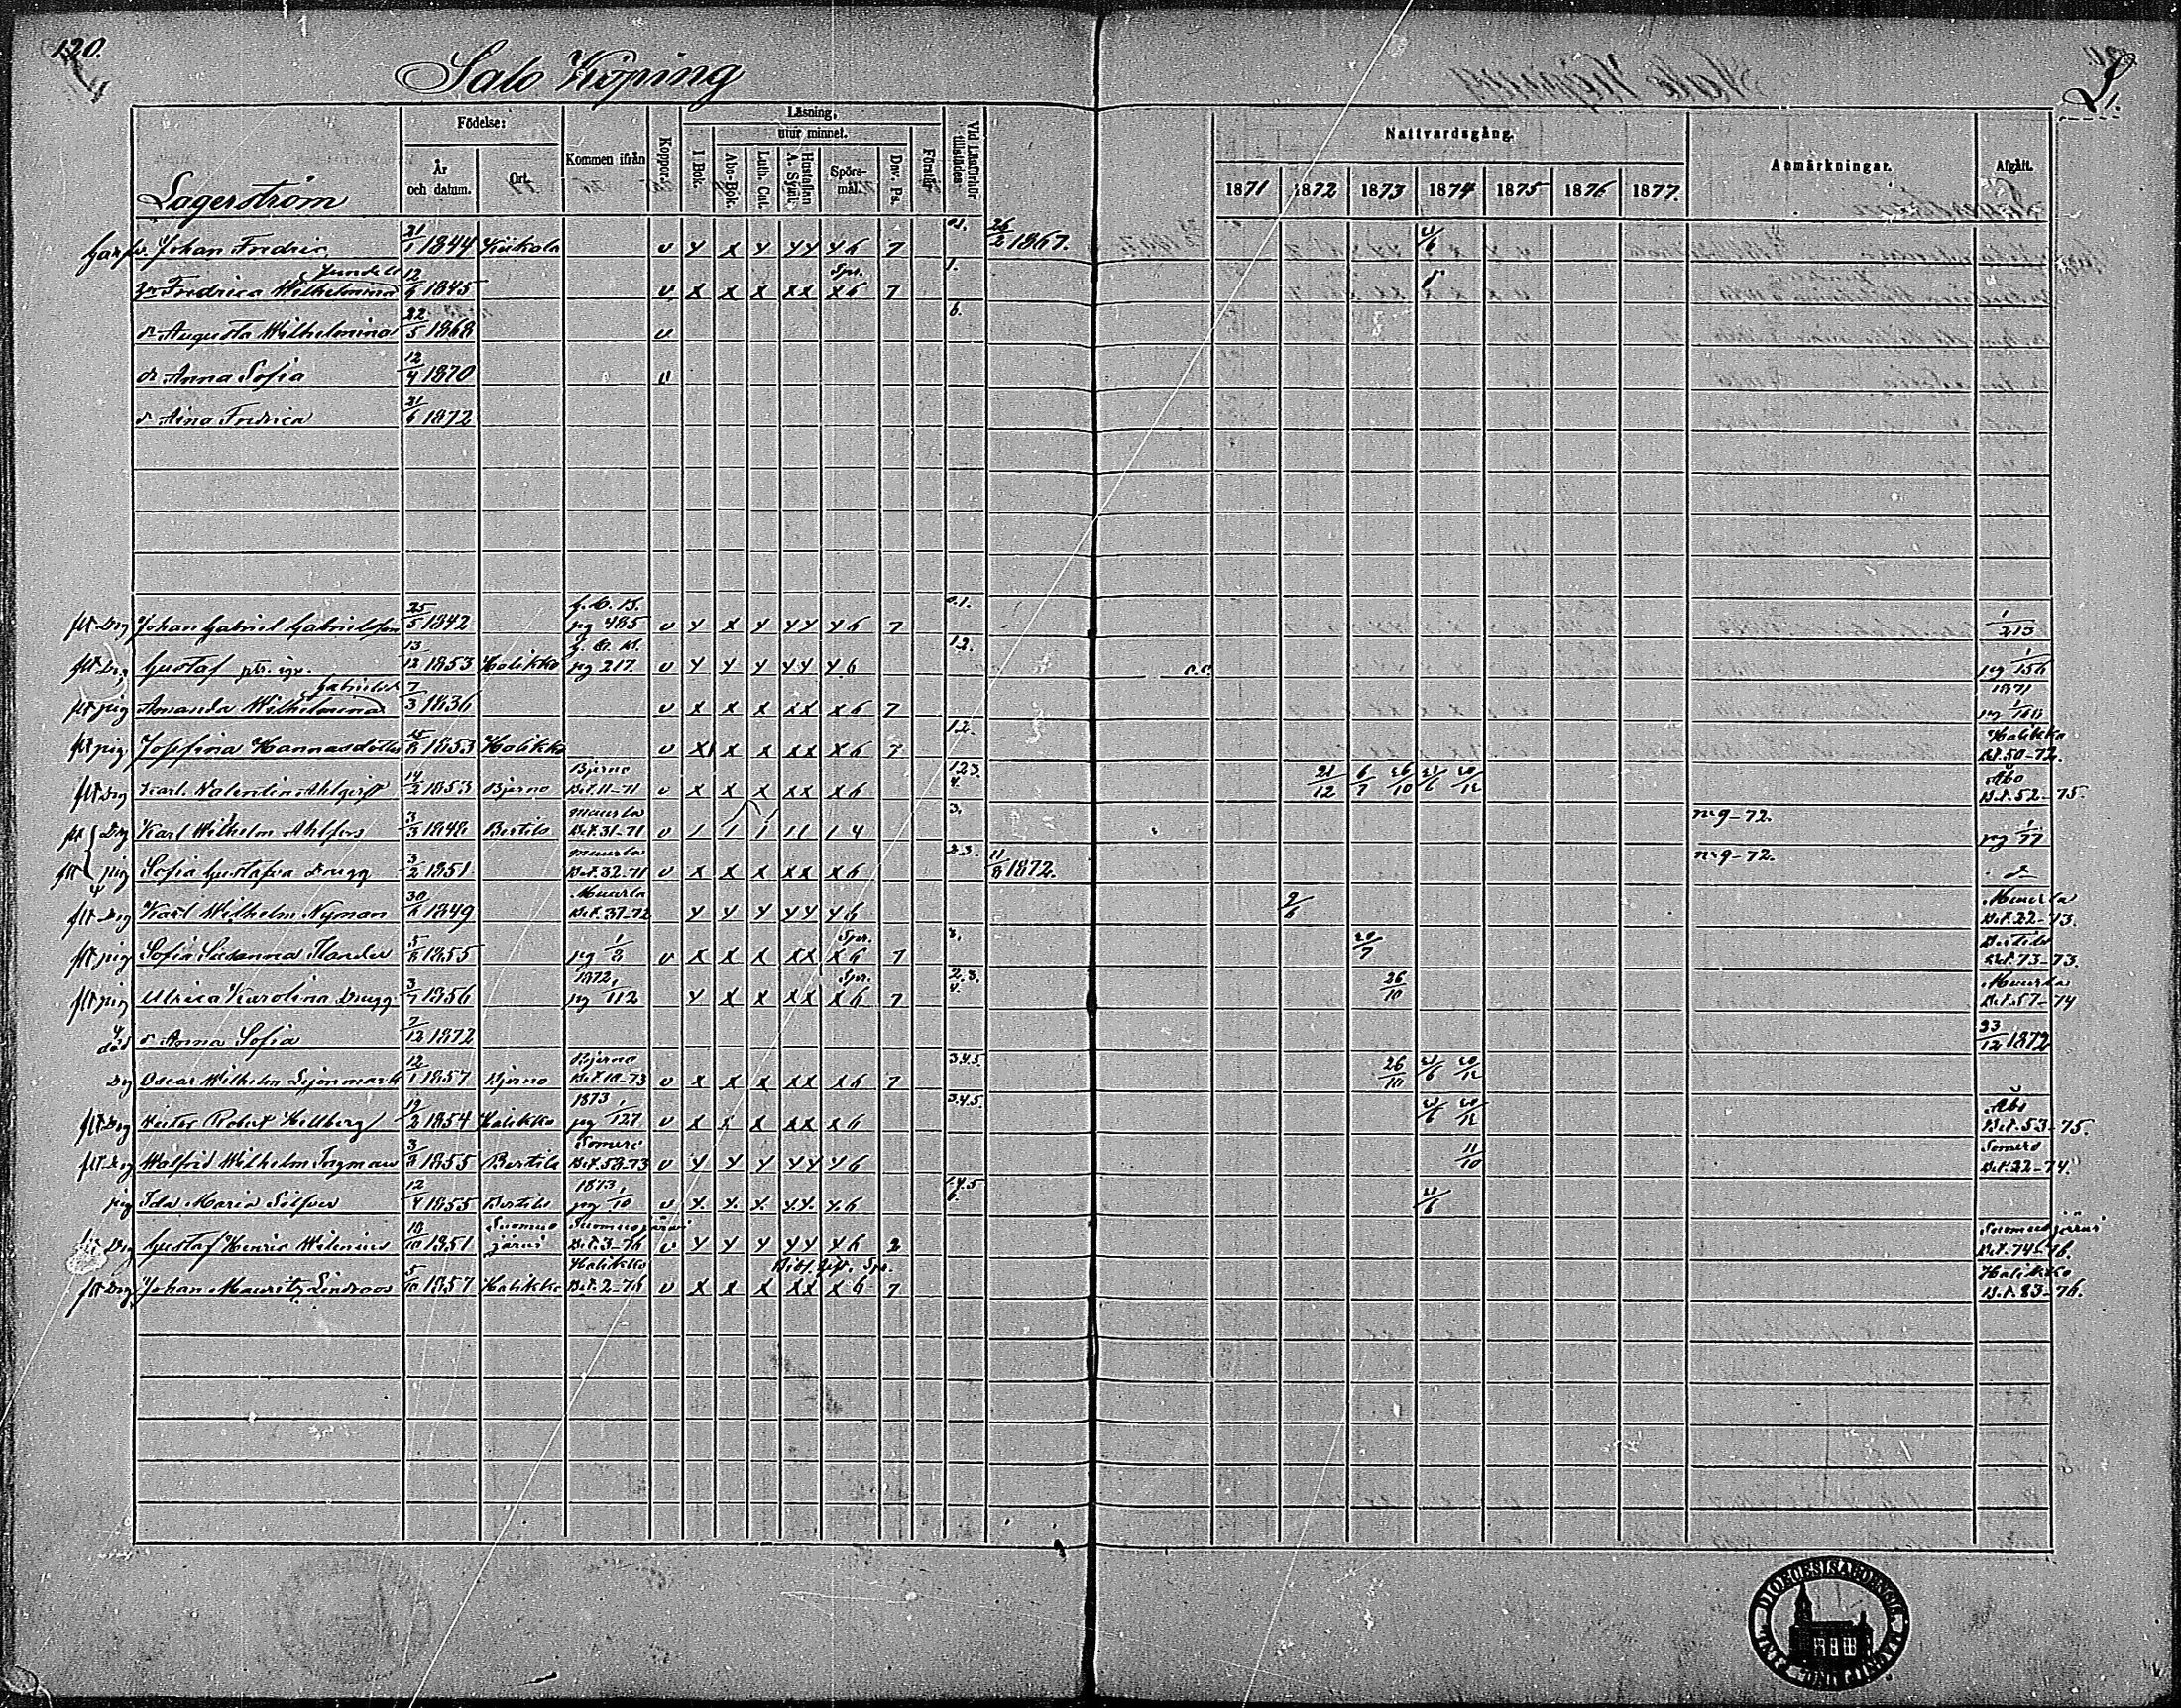 120.
Salo Köping
L 1.
Födelse:
Kommen ifrån
Koppor.
Läsning,
utur minnet.
I Bok.
Abo-Bok.
Luth. Cat.
Hustaflan A. Symb.
Spörsmål.
Dav. Ps.
Förstår
Vid Läsförhör tillstädes
Nattvardsgång.
Anmärkningar.
Afgått.
År och datum.
Ort.
1871 1872 1873 1874 1875 1876 1877.
Lagerström
Johan Fredric 21/1 1844 Kiikala v y x y yy y 6 7 26/2 1867.
Lundell
Fredrica Wilhelmina 12/9 1845 v x x x xx x 6 7 1.
dr Augusta Wilhelmina 22/5 1868 v 6.
dr Anna Sofia 12/4 1870 v
dr Aina Fredrica 21/6 1872
flt Drg Johan Gabriel Gabrielsson 25/5 1842 pg 485 v y x y yy y 6 7 1/213
flt Drg Gustaf 13/12 1853 Halikko pg 217 v y y y yy y 6 12. pg 1/156
1871
flt pig Amanda Wilhelmina Gabrielsd 7/3 1836 v x x x xx x 6 7
flt pig Josefina Hannasdotter 1853 Halikko v x x x xx x 6 7 12. Halikko Bet. 50-72.
flt Drg Karl Valentin Ahlqvist 14/2 1853 Bjerno Bjerno Bet. 11-71 v x x x xx x 6 123. 4. 21/12 6/7 26/10 Åbo Bet. 52-75.
Drg Karl Wilhelm Ahlfors 3/3 1848 Bertila Muurla Bet. 31-71 v 3. n:o 9-72. pg 1/77
pig Sofia Gustafva Drugg 3/2 1851 Muurla Bet. 32-71 v x x x xx x 6 23. 11/8 1872. n:o 9-72.
flt Drg Karl Wilhelm Nyman 30/6 1849 Muurla Bet. 37-72 y y y yy y 6 9/6 Muurla Bet. 22-73.
flt pig Sofia Susanna Flander 5/8 1855 pg 1/8 v x x x xx x 6 7 20/7 Bertila Bet. 73-73.
flt pig Ulrica Karolina Drugg 3/7 1856 1872 pg 1/112 y x x xx x 6 7 2.3. 4. 26/10 Muurla Bet. 57-74
död Anna Sofia 7/12 1872 23/12 1872
Drg Oscar Wilhelm Sjönmark 12/1 1857 Bjerno Bjerno Bet. 10-73 v x x x xx x 6 7 3.4.5. 26/10
flt Drg Victor Robert Hellberg 19/2 1854 Halikko 1873 pg 1/127 v x x x xx x 6 3.4.5. Åbo Bet. 53-75.
flt Drg Walfrid Wilhelm Ingman 1855 Bertila Somero Bet. 58-73 v y y y yy y 6 11/10 Somero Bet. 22-74.
pig Ida Maria Silfver 12/4 1855 Bertila 1873 pg 1/10 v y y y yy y 6
Drg Gustaf Henric Wilenius 18/10 1851 Suomusjärvi Suomusjärvi Bet. 3-76 v y y y yy y 6 2 Suomusjärvi Bet. 74-76.
flt Drg Johan Mauritz Lindroos 5/10 1857 Halikko Halikko Bet. 2-76 v x x x xx x 6 7 Halikko Bet. 83-76.